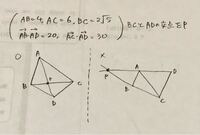 AB=4, AC=6, BC=2√5
AB·AD=20, AC·AD=30
BCとADの交点をP
○
A
B
P
C
D
×
P
B
A
D
C